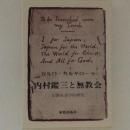 To be Inscribed upon
my Tomb.
I for Japan;
Japan for the World;
The World for Christ;
And All for God.
カルロ・カルダローラ
内村鑑三と無教会